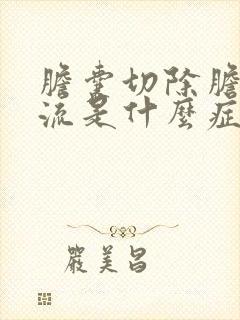 膽囊切除膽
流是什麼症
嚴美昌